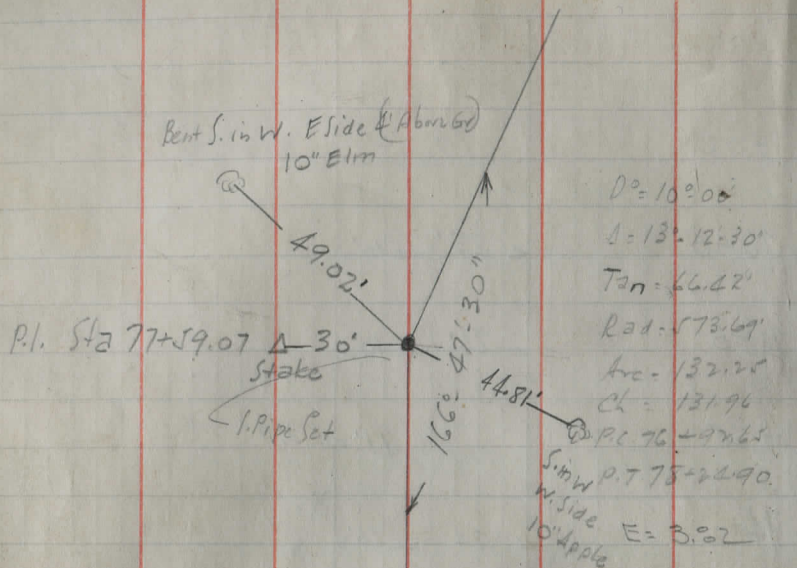 Bent S. in W. E Side (4' Above Gr)
10" Elm
49.02'
P.I. Sta 77+59.07
30'
Stake
I. Pipe Set
166°-47'-30"
44.81'
S. in W
W. Side
10" Apple
D° = 10°-00
Δ = 13°-12-30"
Tan = 66.42'
Rad = 573.69'
Arc = 132.25
Ch = 131.96
P.C 76+92.65
P.T 78+24.90